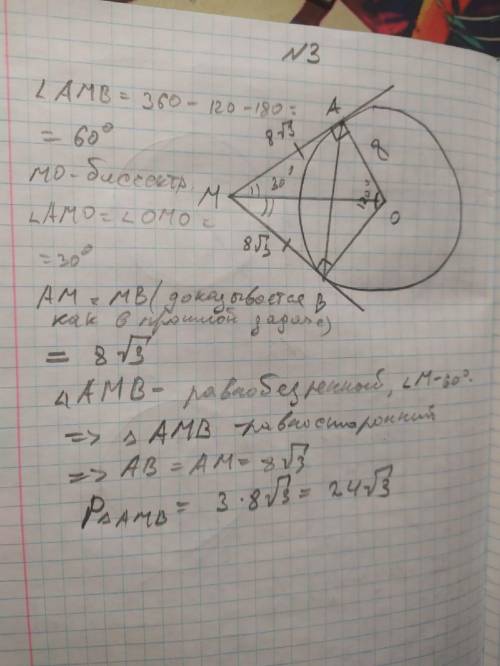 N3
∠AMB = 360 - 120 - 180 =
= 60°
MO - биссектр.
∠AMO = ∠OMO =
= 30°
AM = MB (доказывается
как в прошлой задаче)
= 8√3
△AMB - равнобезренный, ∠M-60°.
=> △AMB -равносторонний
=> AB = AM = 8√3
P△AMB = 3·8√3 = 24√3
A
8√3
8
M
30°
O
8√3
B